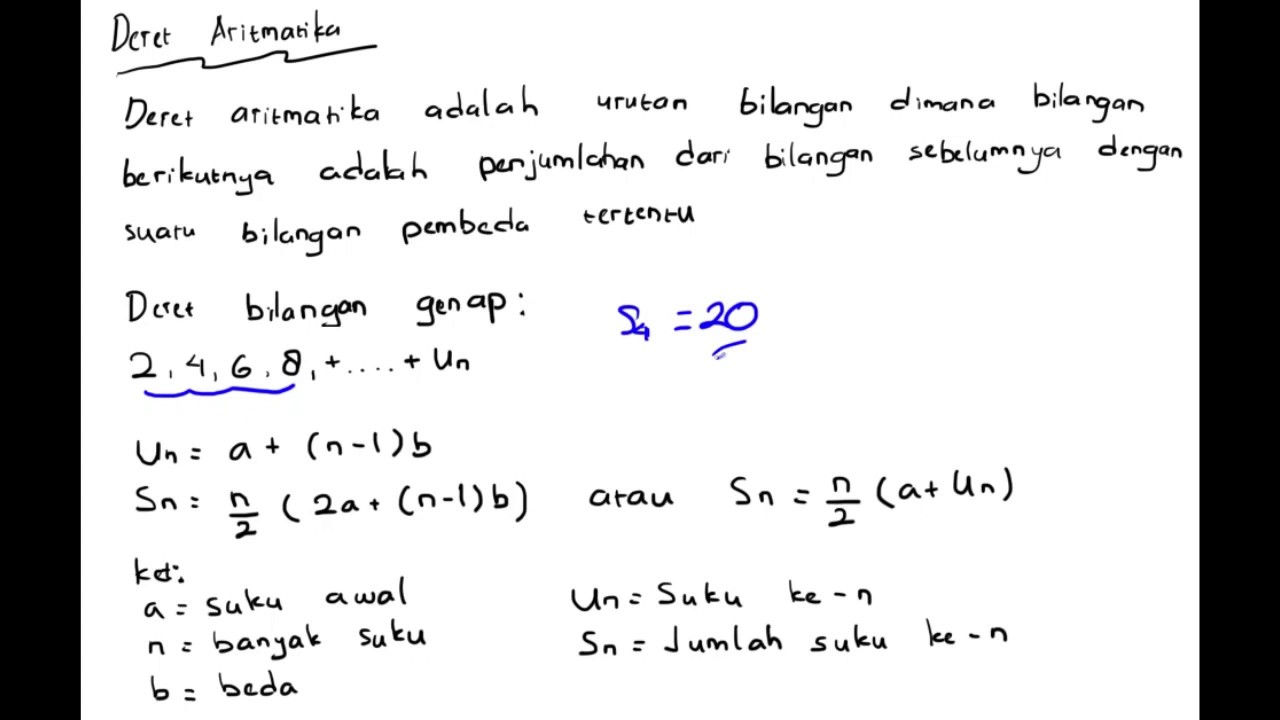 Deret Aritmatika
Deret aritmatika adalah urutan bilangan dimana bilangan
berikutnya adalah penjumlahan dari bilangan sebelumnya dengan
suatu bilangan pembeda tertentu
Deret bilangan genap:
S₄ = 20
2, 4, 6, 8, + .... + Un
Un = a + (n-1)b
Sn = n/2 (2a + (n-1)b) atau Sn = n/2 (a + Un)
ket:
a = suku awal
n = banyak suku
b = beda
Un = Suku ke-n
Sn = Jumlah suku ke-n